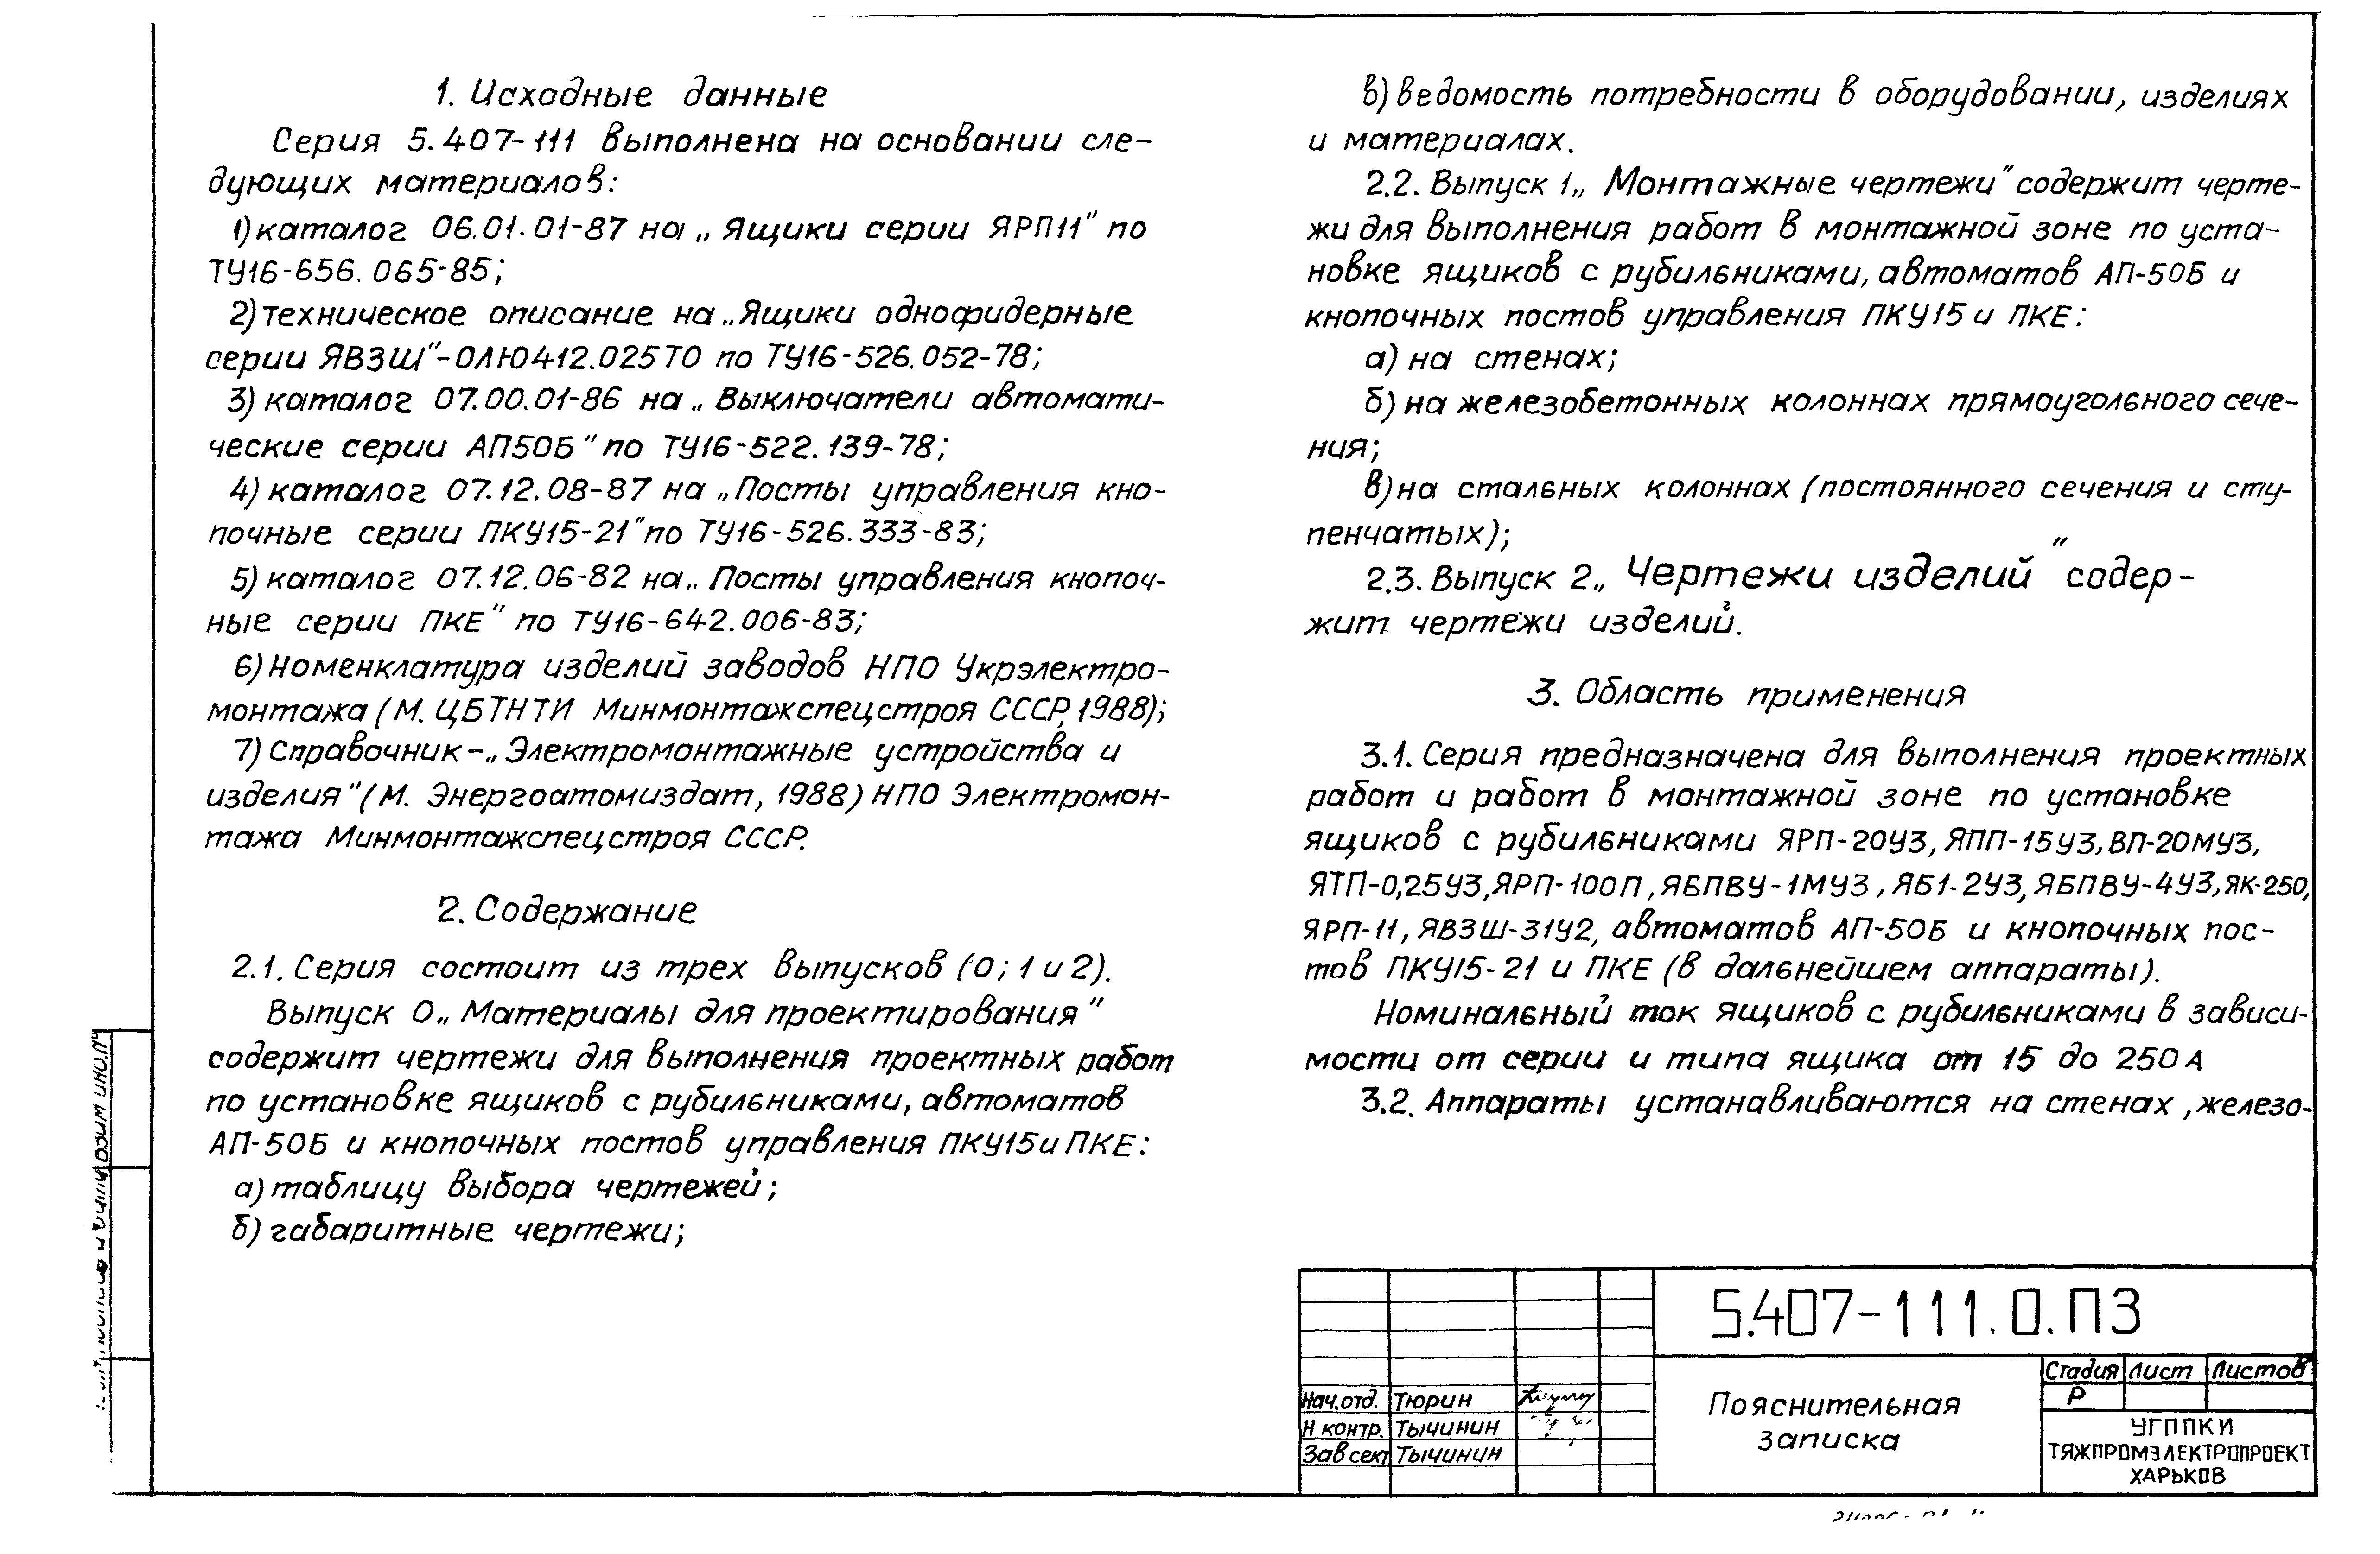 1. Исходные данные
Серия 5.407-111 выполнена на основании сле-
дующих материалов:
1) каталог 06.01.01-87 на „Ящики серии ЯРП11" по
ТУ16-656.065-85;
2) техническое описание на „Ящики однофидерные
серии ЯВЗШ"-ОЛЮ412.025ТО по ТУ16-526.052-78;
3) каталог 07.00.01-86 на „Выключатели автомати-
ческие серии АП50Б" по ТУ16-522.139-78;
4) каталог 07.12.08-87 на „Посты управления кно-
почные серии ПКУ15-21" по ТУ16-526.333-83;
5) каталог 07.12.06-82 на „Посты управления кнопоч-
ные серии ПКЕ" по ТУ16-642.006-83;
6) Номенклатура изделий заводов НПО Укрэлектро-
монтажа (М. ЦБТНТИ Минмонтажспецстроя СССР, 1988);
7) Справочник-„Электромонтажные устройства и
изделия" (М. Энергоатомиздат, 1988) НПО Электромон-
тажа Минмонтажспецстроя СССР.
2. Содержание
2.1. Серия состоит из трех выпусков (0; 1 и 2).
Выпуск 0 „Материалы для проектирования"
содержит чертежи для выполнения проектных работ
по установке ящиков с рубильниками, автоматов
АП-50Б и кнопочных постов управления ПКУ15 и ПКЕ:
а) таблицу выбора чертежей;
б) габаритные чертежи;
в) ведомость потребности в оборудовании, изделиях
и материалах.
2.2. Выпуск 1 „Монтажные чертежи" содержит черте-
жи для выполнения работ в монтажной зоне по уста-
новке ящиков с рубильниками, автоматов АП-50Б и
кнопочных постов управления ПКУ15 и ПКЕ:
а) на стенах;
б) на железобетонных колоннах прямоугольного сече-
ния;
в) на стальных колоннах (постоянного сечения и сту-
пенчатых);
2.3. Выпуск 2 „Чертежи изделий" содер-
жит чертежи изделий.
3. Область применения
3.1. Серия предназначена для выполнения проектных
работ и работ в монтажной зоне по установке
ящиков с рубильниками ЯРП-20У3, ЯПП-15У3, ВП-20МУ3,
ЯТП-0,25У3, ЯРП-100П, ЯБПВУ-1МУ3, ЯБ1-2У3, ЯБПВУ-4У3, ЯК-250,
ЯРП-11, ЯВЗШ-31У2, автоматов АП-50Б и кнопочных пос-
тов ПКУ15-21 и ПКЕ (в дальнейшем аппараты).
Номинальный ток ящиков с рубильниками в зависи-
мости от серии и типа ящика от 15 до 250 А
3.2. Аппараты устанавливаются на стенах, железо-
5.407-111.0.ПЗ
Нач.отд. Тюрин
Н контр. Тычинин
Зав сект Тычинин
Пояснительная
записка
Стадия Лист Листов
Р
УГППКИ
ТЯЖПРОМЭЛЕКТРОПРОЕКТ
ХАРЬКОВ